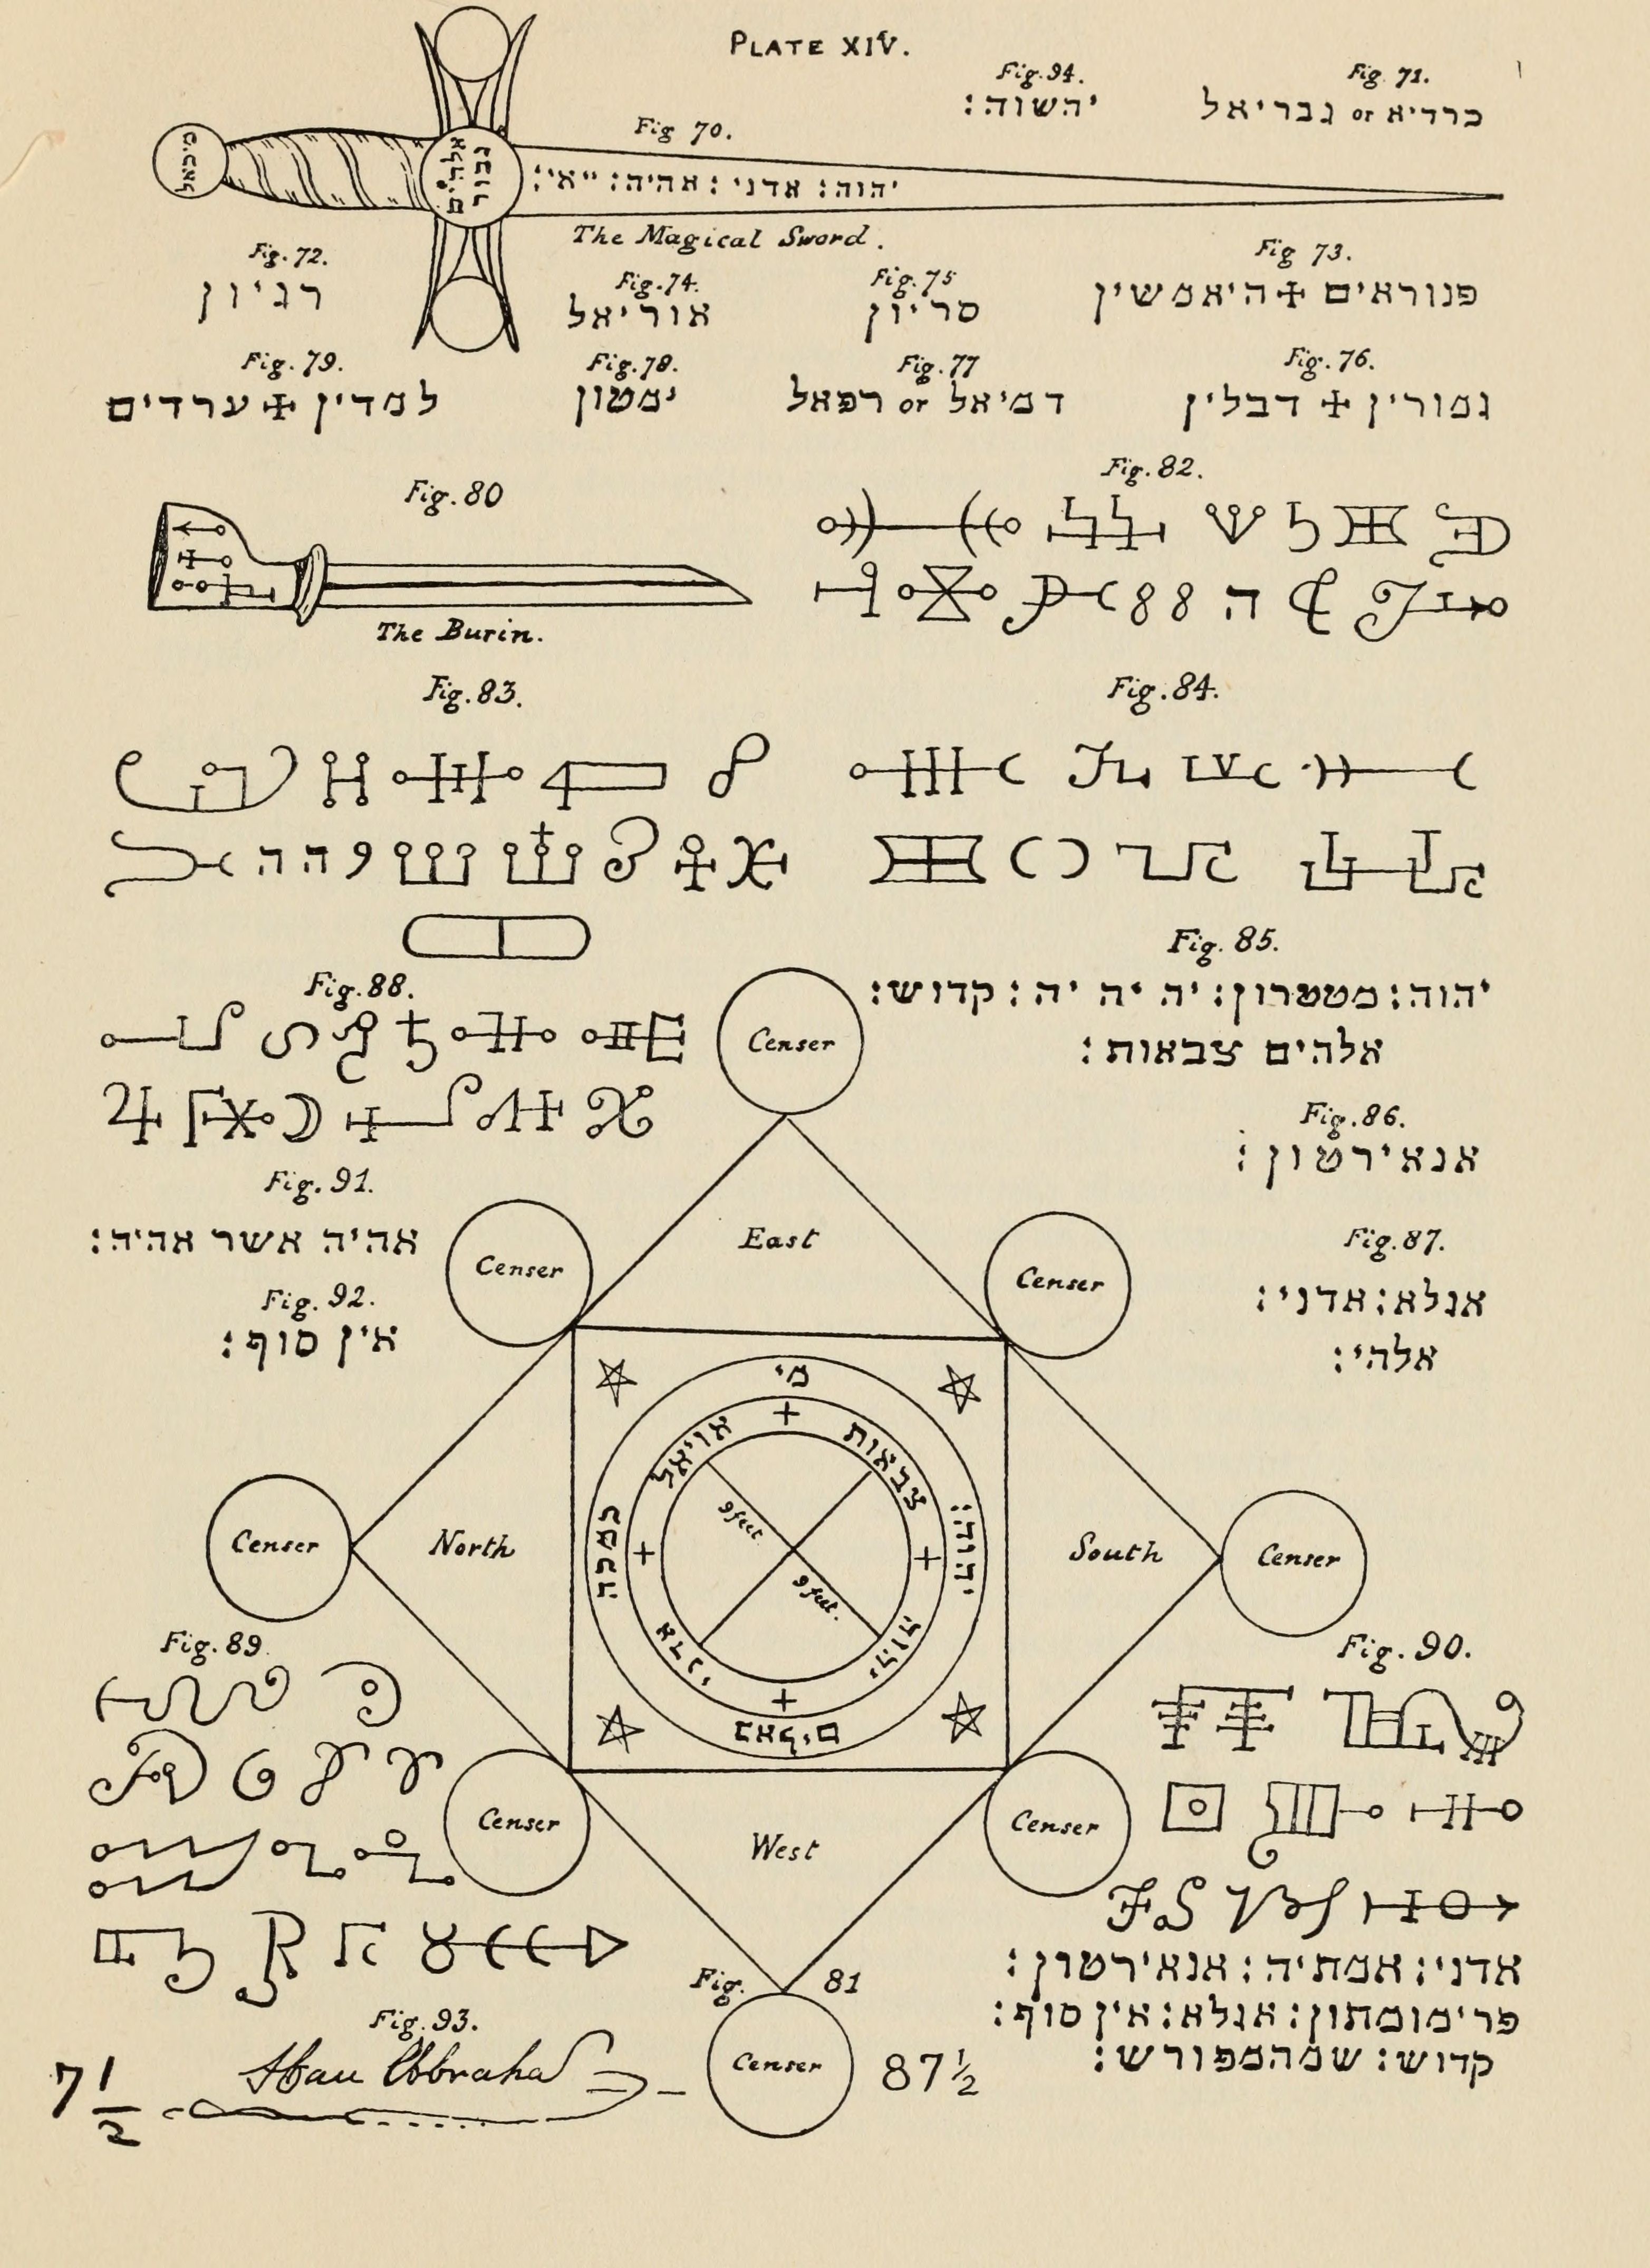 PLATE XIV.
Fig. 94.
יהשוה:
Fig. 71.
כרדיא or גבריאל
Fig 70.
מיכאל
אלהים
גבור
יהוה: אדני: אהיה: ייאי:
The Magical Sword.
Fig. 72.
רגיון
Fig. 74.
אוריאל
Fig. 75
סריון
Fig 73.
פנוראים ✠ היאמשין
Fig. 79.
למדין ✠ ערדים
Fig. 78.
ימטון
Fig. 77
דמיאל or רפאל
Fig. 76.
גמורין ✠ דבלין
Fig. 80
The Burin.
Fig. 82.
Fig. 83.
Fig. 84.
Fig. 85.
יהוה: מטטרון: יה יה יה: קדוש:
אלהים צבאות:
Fig. 88.
Censer
Fig. 86.
אנאירטון:
Fig. 91.
אהיה אשר אהיה:
Censer
East
Censer
Fig. 87.
אגלא: אדני:
אלהי:
Fig. 92.
אין סוף:
מי
צבאות
יהוה:
במכה
9 feet
9 feet.
Censer
North
South
Censer
יהוה
Fig. 89.
Fig. 90.
Censer
West
Censer
Fig. 81
אדני: אמתיה: אנאירטון:
פרימומתון: אגלא: אין סוף:
קדוש: שמהמפורש:
Fig. 93.
Censer
7 1/2
87 1/2